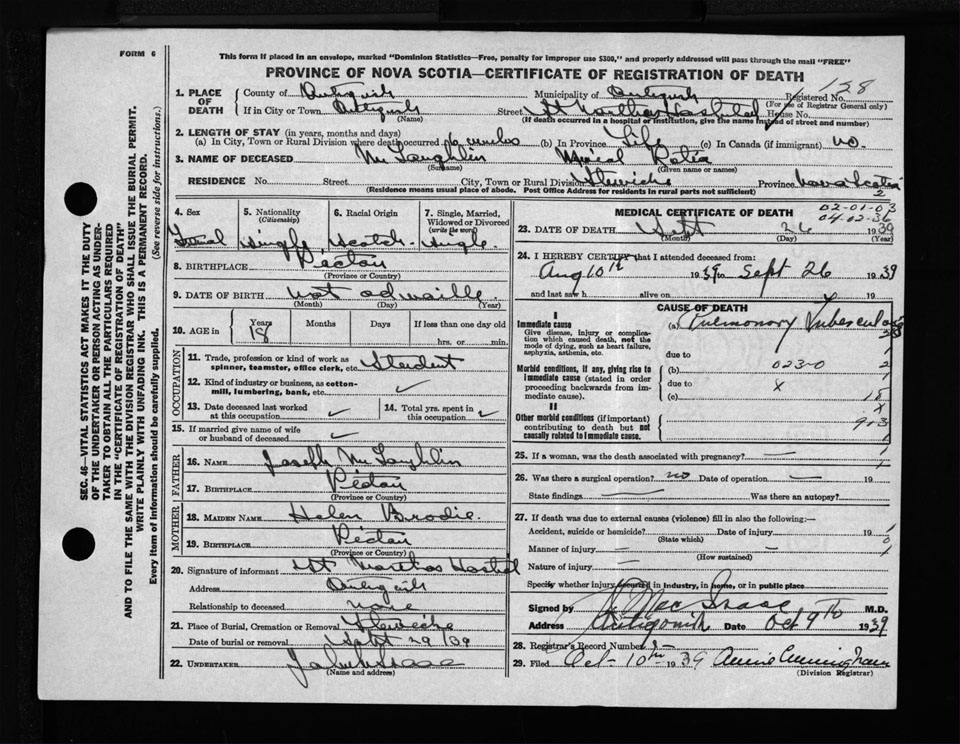 FORM 6
This form if placed in an envelope, marked "Dominion Statistics—Free, penalty for improper use $300," and properly addressed will pass through the mail "FREE"
PROVINCE OF NOVA SCOTIA—CERTIFICATE OF REGISTRATION OF DEATH
128
1. PLACE OF DEATH
County of Antigonish Municipality of Antigonish Registered No.
(For use of Registrar General only)
If in City or Town Antigonish Street St Marthas Hospital House No.
(Name) (If death occurred in a hospital or institution, give the name instead of street and number)
2. LENGTH OF STAY (in years, months and days)
(a) In City, Town or Rural Division where death occurred 6 weeks (b) In Province Life (c) In Canada (if immigrant) no.
3. NAME OF DECEASED McLaughlin
(Surname) (Given name or names)
RESIDENCE No. Street City, Town or Rural Division Province Nova Scotia
(Residence means usual place of abode. Post Office Address for Residents in rural parts not sufficient)
4. Sex
5. Nationality (Citizenship)
6. Racial Origin Scotch
7. Single, Married, Widowed or Divorced (write the word) Single
8. BIRTHPLACE Pictou
(Province or Country)
9. DATE OF BIRTH not
(Month) (Day) (Year)
10. AGE in Years Months Days If less than one day old
18 hrs. or min.
OCCUPATION
11. Trade, profession or kind of work as spinner, teamster, office clerk, etc. Student
12. Kind of industry or business, as cotton-mill, lumbering, bank, etc. ✓
13. Date deceased last worked at this occupation ✓
14. Total yrs. spent in this occupation ✓
15. If married give name of wife or husband of deceased ✓
FATHER
16. NAME Joseph McLaughlin
17. BIRTHPLACE Pictou
(Province or Country)
MOTHER
18. MAIDEN NAME Helen Brodie
19. BIRTHPLACE Pictou
(Province or Country)
20. Signature of informant St Marthas Hospital
Address Antigonish
Relationship to deceased none
21. Place of Burial, Cremation or Removal
Date of burial or removal Sept 29/39
22. UNDERTAKER
(Name and address)
MEDICAL CERTIFICATE OF DEATH
02-01-03
04-02-36
23. DATE OF DEATH Sept 26 1939
(Month) (Day) (Year)
24. I HEREBY CERTIFY that I attended deceased from:
Aug 10th 1939 to Sept 26 1939
and last saw h alive on 19
CAUSE OF DEATH
I
Immediate cause
Give disease, injury or complication which caused death, not the mode of dying, such as heart failure, asphyxia, asthenia, etc.
(a) Pulmonary Tuberculosis
due to
Morbid conditions, if any, giving rise to Immediate cause (stated in order proceeding backwards from immediate cause).
(b) 023-0
due to x
(c) 18
II
Other morbid conditions (if important) contributing to death but not causally related to Immediate cause.
913
25. If a woman, was the death associated with pregnancy?
26. Was there a surgical operation? no Date of operation 19
State findings Was there an autopsy?
27. If death was due to external causes (violence) fill in also the following:—
Accident, suicide or homicide? Date of injury 19
(State which)
Manner of injury
(How sustained)
Nature of injury
Specify whether injury occurred in industry, in home, or in public place
Signed by MacIsaac M.D.
Address Antigonish Date Oct 9th 1939
28. Registrar's Record Number
29. Filed Oct-10th 1939 Annie Cunningham
(Division Registrar)
SEC. 46—VITAL STATISTICS ACT MAKES IT THE DUTY
OF THE UNDERTAKER OR PERSON ACTING AS UNDER-
TAKER TO OBTAIN ALL THE PARTICULARS REQUIRED
IN THE "CERTIFICATE OF REGISTRATION OF DEATH"
AND TO FILE THE SAME WITH THE DIVISION REGISTRAR WHO SHALL ISSUE THE BURIAL PERMIT.
WRITE PLAINLY WITH UNFADING INK. THIS IS A PERMANENT RECORD.
Every item of information should be carefully supplied. (See reverse side for instructions.)